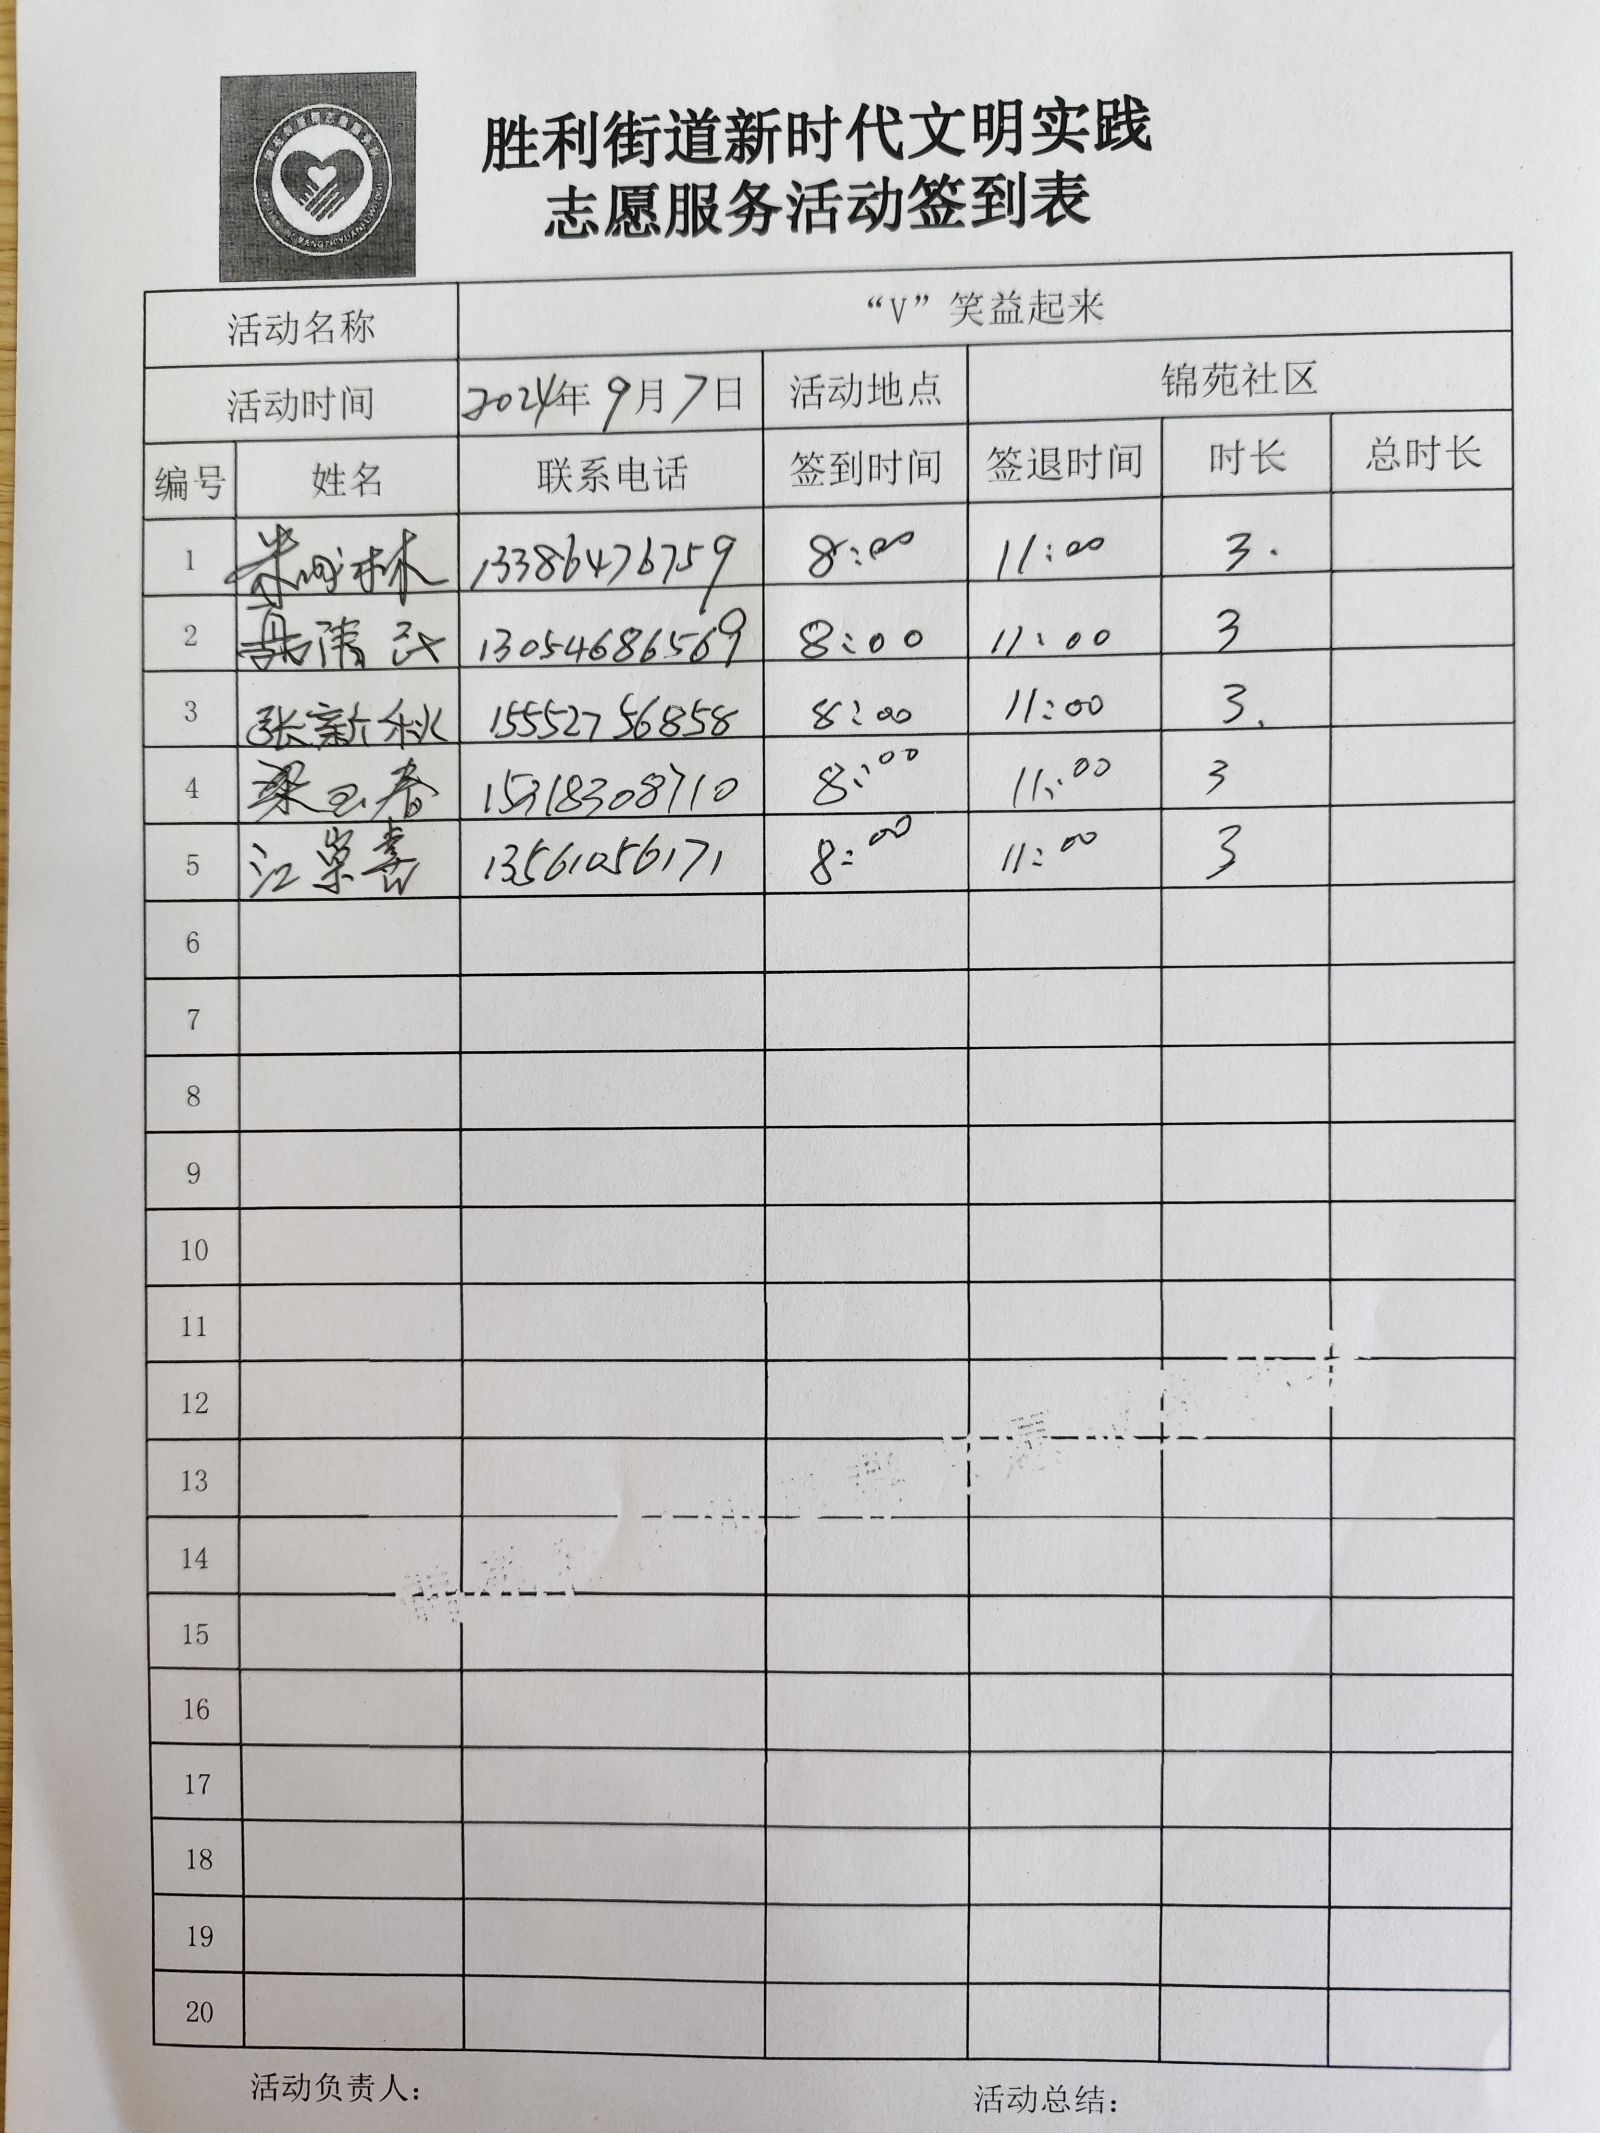 胜利街道新时代文明实践
志愿服务活动签到表
活动名称 “V”笑益起来
活动时间 2024年9月7日 活动地点 锦苑社区
编号 姓名 联系电话 签到时间 签退时间 时长 总时长
1 林 13386476759 8:00 11:00 3.
2 高清 13054686569 8:00 11:00 3
3 张新秋 15552756858 8:00 11:00 3.
4 梁玉春 15318308710 8:00 11:00 3
5 江崇喜 13561056171 8:00 11:00 3
6
7
8
9
10
11
12
13
14
15
16
17
18
19
20
活动负责人: 活动总结: